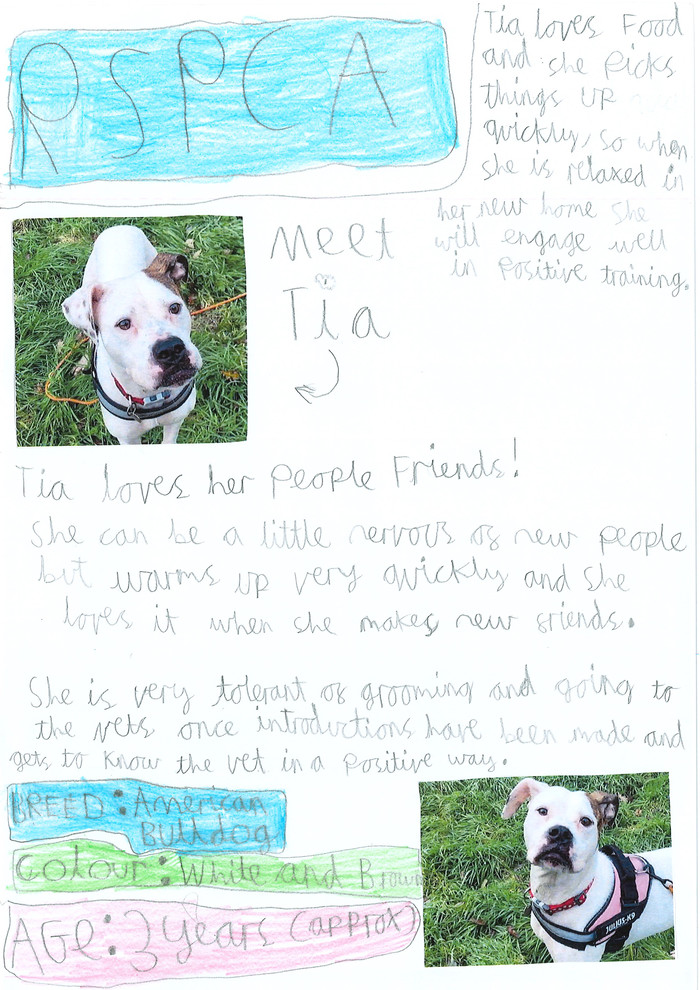 RSPCA
Tia loves Food
and she Picks
things UP
quickly, so when
she is relaxed in
her new home she
will engage well
in Positive training.
Meet
Tia
Tia loves her People Friends!
She can be a little nervous of new people
but warms up very quickly and she
loves it when she makes new friends.
She is very tolerant of grooming and going to
the vets once introductions have been made and
gets to know the vet in a Positive way.
BREED: American
Bulldog
Colour: White and Brown
AGe: 3 years (approx)
JULIUS-K9